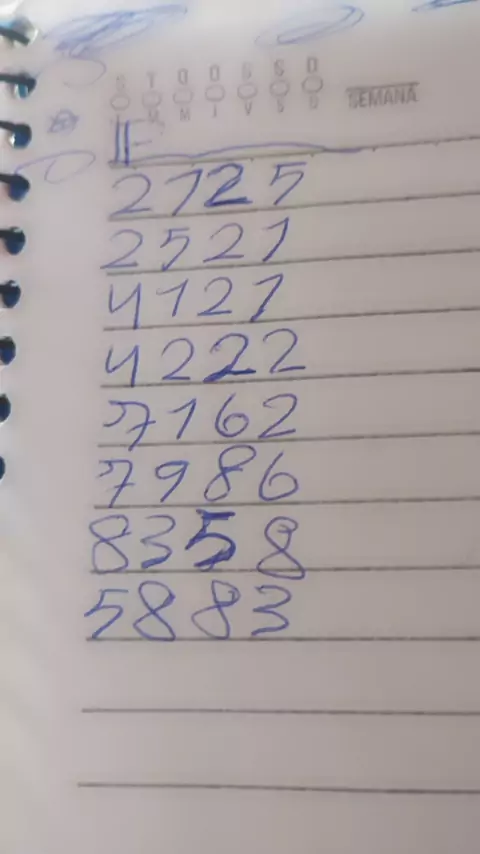 S T Q Q S S D
SEMANA
2125
2521
4121
4222
7162
7986
8358
5883